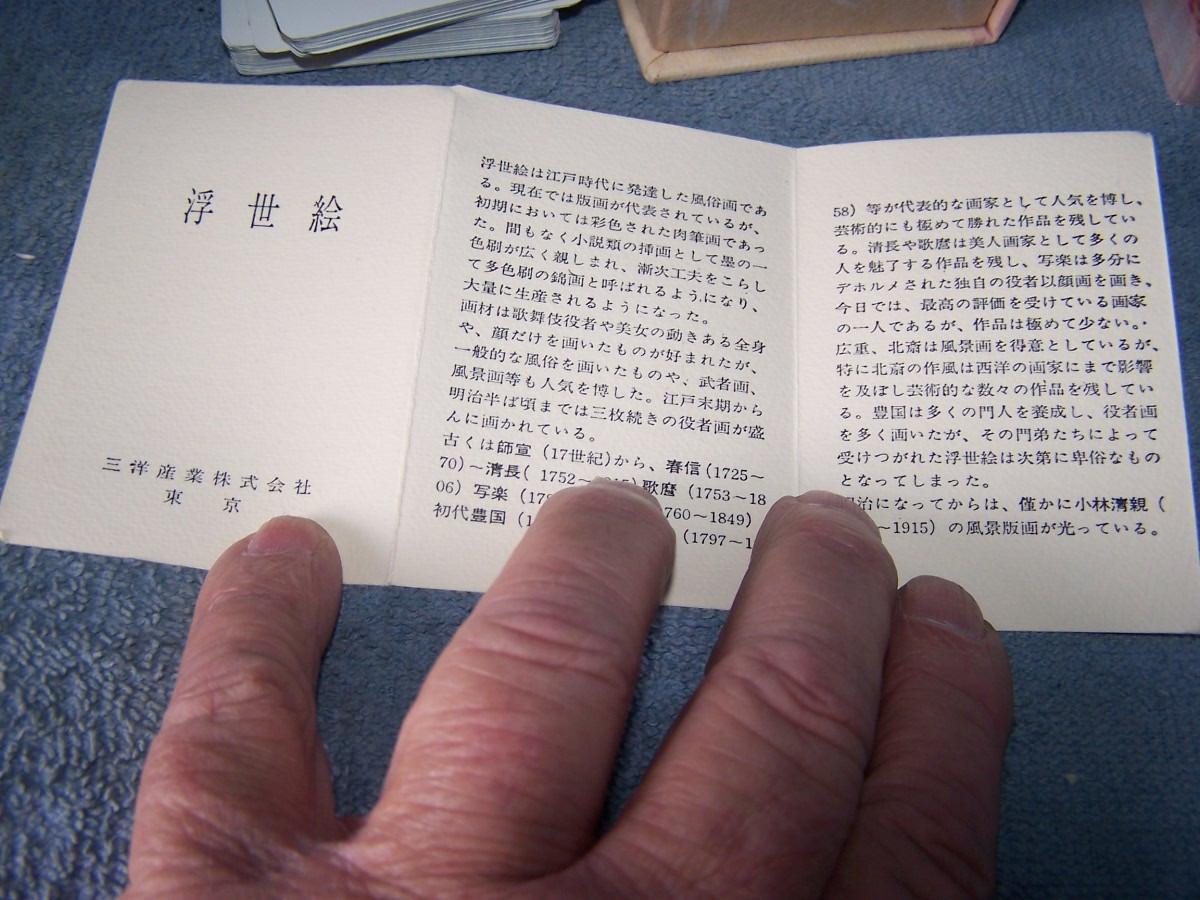 浮世絵
三洋産業株式会社
東京
浮世絵は江戸時代に発達した風俗画であ
る。現在では版画が代表されているが、
初期においては彩色された肉筆画であっ
た。間もなく小説類の挿画として墨の一
色刷が広く親しまれ、漸次工夫をこらし
て多色刷の錦画と呼ばれるようになり、
大量に生産されるようになった。
画材は歌舞伎役者や美女の動きある全身
や、顔だけを画いたものが好まれたが、
一般的な風俗を画いたものや、武者画、
風景画等も人気を博した。江戸末期から
明治半ば頃までは三枚続きの役者画が盛
んに画かれている。
古くは師宣（17世紀）から、春信（1725～
70）～清長（ 1752～ 歌麿（1753～18
06）写楽（ 760～1849）
初代豊国（1 （1797～1
58）等が代表的な画家として人気を博し、
芸術的にも極めて勝れた作品を残してい
る。清長や歌麿は美人画家として多くの
人を魅了する作品を残し、写楽は多分に
デホルメされた独自の役者以顔画を画き、
今日では、最高の評価を受けている画家
の一人であるが、作品は極めて少ない。
広重、北斎は風景画を得意としているが、
特に北斎の作風は西洋の画家にまで影響
を及ぼし芸術的な数々の作品を残してい
る。豊国は多くの門人を養成し、役者画
を多く画いたが、その門弟たちによって
受けつがれた浮世絵は次第に卑俗なもの
となってしまった。
治になってからは、僅かに小林清親（
～1915）の風景版画が光っている。